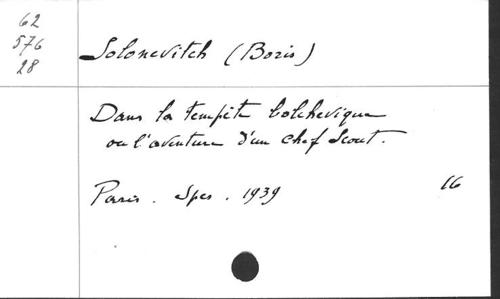 62
576
28
Solonevitch (Boris)
Dans la tempête bolchevique
ou l'aventure d'un chef Scout.
Paris. Spes. 1939
16